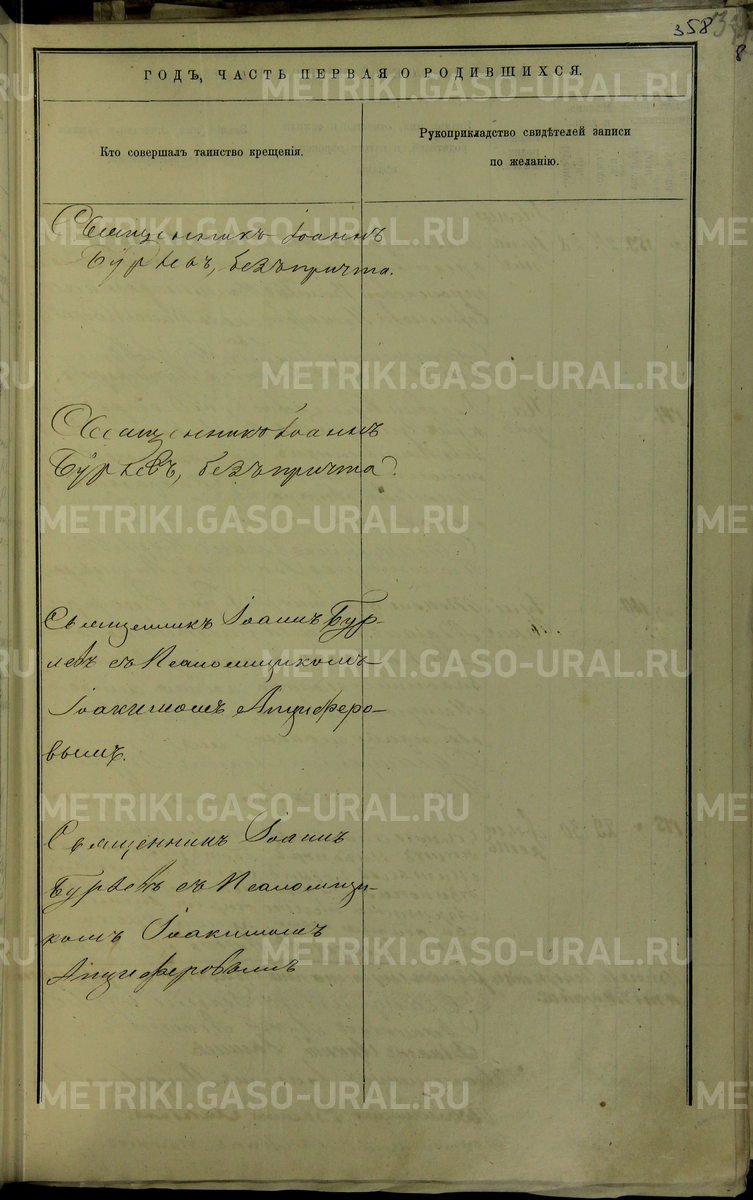 358
8
ГОДЪ, ЧАСТЬ ПЕРВАЯ О РОДИВШИХСЯ.
Кто совершалъ таинство крещенія.
Рукоприкладство свидѣтелей записи
по желанію.
Священникъ Іоаннъ
безъ причта.
Священникъ Іоаннъ
безъ причта.
Священникъ Іоаннъ
съ Псаломщикомъ
Іоакимомъ Анциферо-
вымъ.
Священникъ Іоаннъ
съ Псаломщи-
комъ Іоакимомъ
Анциферовымъ
METRIKI.GASO-URAL.RU